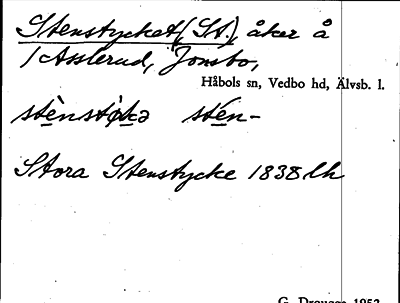 Stenstycket (St.), åker å
1 Asslerud, Jonsbo,
Håbols sn, Vedbo hd, Älvsb. l.
stènstỳkə stén-
Stora Stenstycke 1838 lh